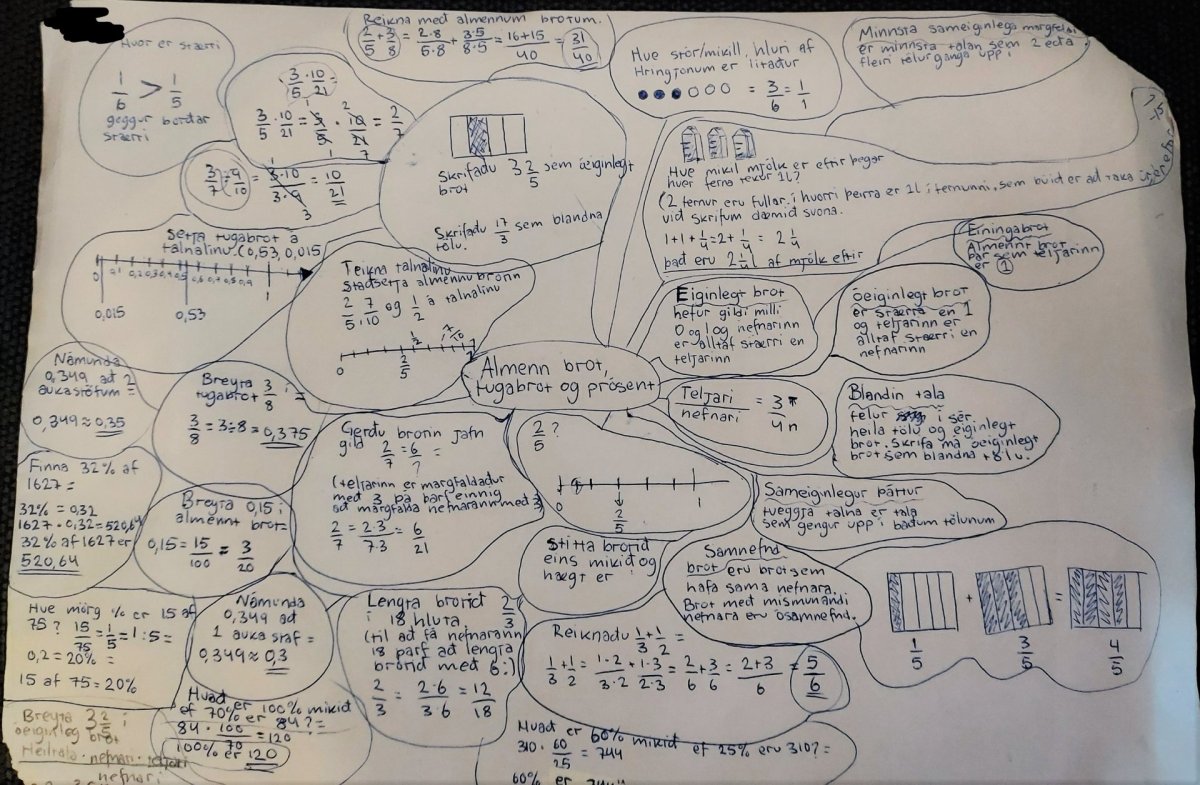 Hvor er stærri
1/6 > 1/5
geggur bordar
stærri
Reikna með almennum brotum.
2/5 + 3/8 = 2·8/5·8 + 3·5/8·5 = 16+15/40 = 31/40
Hve stór/mikill hluri af
Hringjonum er litaður
= 3/6 = 1/1
Minnsta sameiginlega margfeldi
er minnsta talan sem 2 eða
fleiri tölur ganga upp í
3/5 · 10/21 =
3/5 · 10/21 = 3/5 · 10/21 = 2/7
3/7 ÷ 9/10 = 3·10/3·9 = 10/21
Skrifaðu 3 2/5 sem óeiginlegt
brot
Skrifaðu 17/3 sem blandna
tölu.
Hve mikil mjólk er eftir þegar
hver ferna tekur 1L?
(2 fernur eru fullar. í hvorri þeirra er 1L í fernunni, sem búið er að taka
við skrifum dæmið svona.
1+1+1/4 = 2+1/4 = 2 1/4
það eru 2 1/4 L af mjólk eftir
Setja tugabrot á
talnalínu (0,53, 0,015
0 0,1 0,2 0,3 0,4 0,5 0,6 0,7 0,8 0,9 1
0,015 0,53
Teikna talnalínu
staðsetja almennu brotin
2/5, 7/10 og 1/2 á talnalínu
1/2 7/10
0 2/5
Einingabrot
Almennt brot
þar sem teljarinn
er 1
Eiginlegt brot
hefur gildi milli
0 og 1 og nefnarinn
er alltaf stærri en
teljarinn
óeiginlegt brot
er stærra en 1
og teljarinn er
alltaf stærri en
nefnarinn
Almenn brot,
tugabrot og prósent
Námunda
0,349 að 2
aukastöfum =
0,349 ≈ 0,35
Breyta 3/8 í
tugabrot
3/8 = 3÷8 = 0,375
Gerðu brotin jafn
gild 2/7 = 6/? =
(teljarinn er margfaldaður
með 3 þá þarf einnig
að margfalda nefnarann með 3
2/7 = 2·3/7·3 = 6/21
2/5 ?
0 2/5 1
Teljari/nefnari = 3/4
Blandin tala
felur í sér
heila tölu og eiginlegt
brot. Skrifa má óeiginlegt
brot sem blandna tölu.
Finna 32% af
1627 =
32% = 0,32
1627 · 0,32 = 520,64
32% af 1627 er
520,64
Breyta 0,15 í
almennt brot =
0,15 = 15/100 = 3/20
Sameiginlegur þáttur
tveggja talna er tala
sem gengur upp í báðum tölunum
Stitta brotið
eins mikið og
hægt er
Samnefnd
brot eru brot sem
hafa sama nefnara.
Brot með mismunandi
nefnara eru ósamnefnd.
+ =
1/5 3/5 4/5
Hve mörg % er 15 af
75? 15/75 = 1/5 = 1:5 =
0,2 = 20% =
15 af 75 = 20%
Námunda
0,349 að
1 auka staf =
0,349 ≈ 0,3
Lengja brotið 2/3
í 18 hluta.
(til að fá nefnarann
18 þarf að lengja
brotið með 6:)
2/3 = 2·6/3·6 = 12/18
Reiknaðu 1/3 + 1/2 =
1/3 + 1/2 = 1·2/3·2 + 1·3/2·3 = 2/6 + 3/6 = 2+3/6 = 5/6
Breyta 3 2/5 í
óeiginleg brot
Heiltala · nefnari · teljari
nefnari
Hvað er 100% mikið
ef 70% er 84? =
84 · 100/70 = 120
100% er 120
Hvað er 60% mikið ef 25% eru 310? =
310 · 60/25 = 744
60% er 744